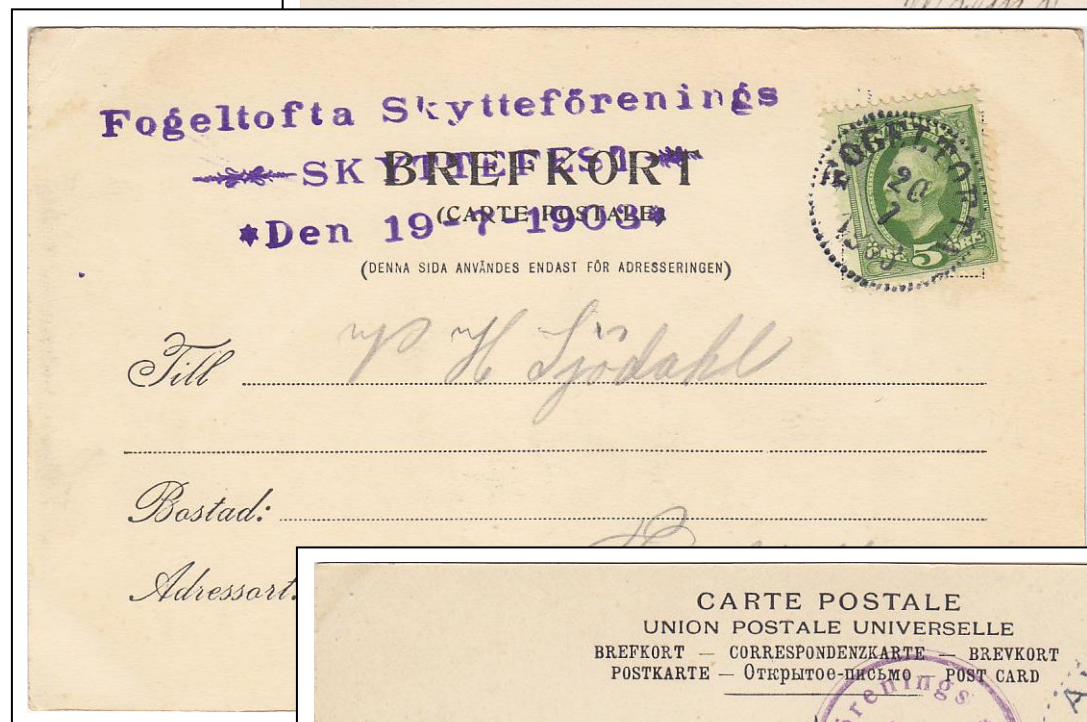 Fogeltofta Skytteförenings
SKYTTEFEST
BREFKORT
*Den 19-7-1903*
(CARTE POSTALE)
(DENNA SIDA ANVÄNDES ENDAST FÖR ADRESSERINGEN)
FOGELTOFTA
20
7
1903
ÖRE 5 ÖRE
Till H Sjödahl
Bostad:
Adressort:
CARTE POSTALE
UNION POSTALE UNIVERSELLE
BREFKORT — CORRESPONDENZKARTE — BREVKORT
POSTKARTE — Открытое-письмо POST CARD
örenings
A